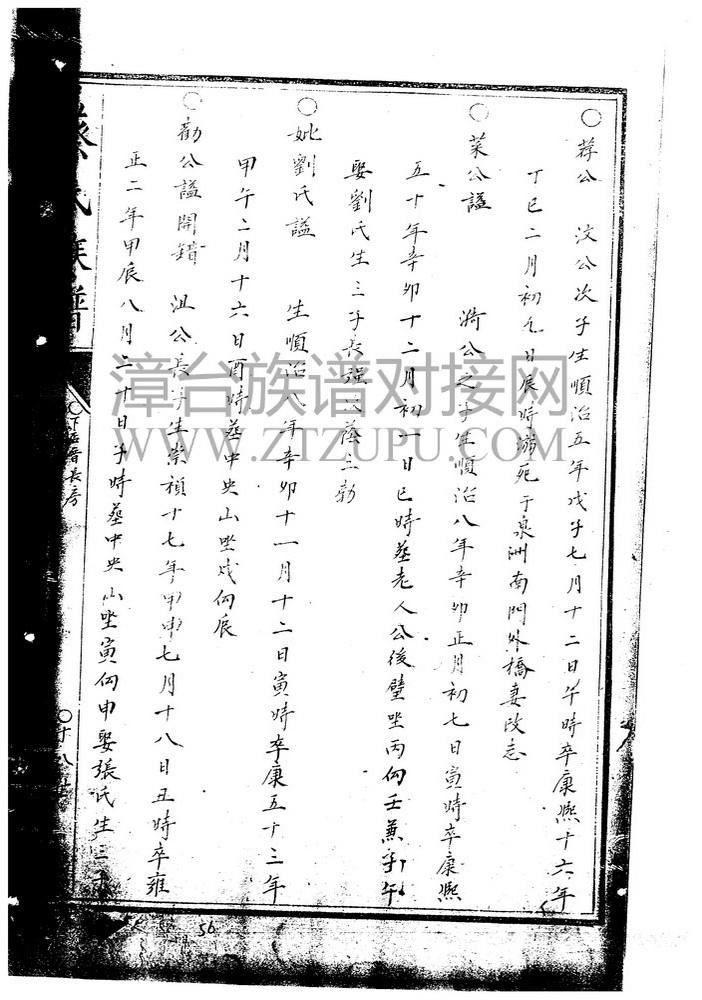 ○荐公 汶公次子生順治五年戊子七月十二日午時卒康熙十六年
丁巳二月初九日辰時溺死于泉洲南門外橋妻改志
○菜公謚 漪公之子生順治八年辛卯正月初七日寅時卒康熙
五十年辛卯十二月初一日巳時葬老人公後壁坐丙向壬兼子午
娶劉氏生三子長强次蔭三勃
○妣劉氏謚 生順治八年辛卯十一月十二日寅時卒康五十三年
甲午二月十六日酉時葬中央山坐戍向辰
○勸公謚開錯 沮公長子生崇禎十七年甲申七月十八日丑時卒雍
正二年甲辰八月二十日子時葬中央山坐寅向申娶張氏生三子
氏族譜
長房
○十八世
漳台族谱对接网
WWW.ZTZUPU.COM
56